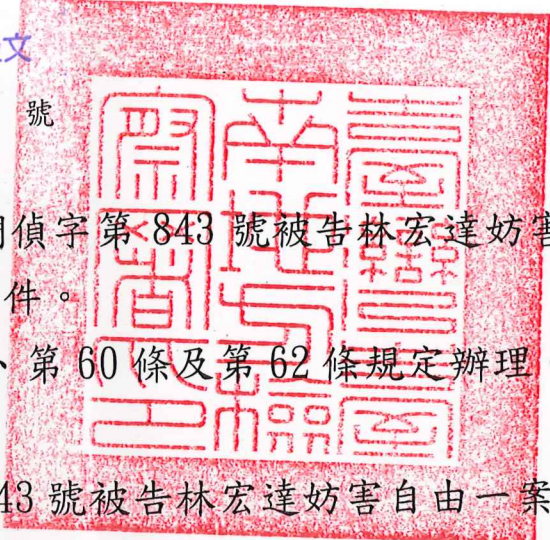 文
號
偵字第 843 號被告林宏達妨害
件。
、第 60 條及第 62 條規定辦理
43 號被告林宏達妨害自由一案
臺灣臺南地方檢察署印